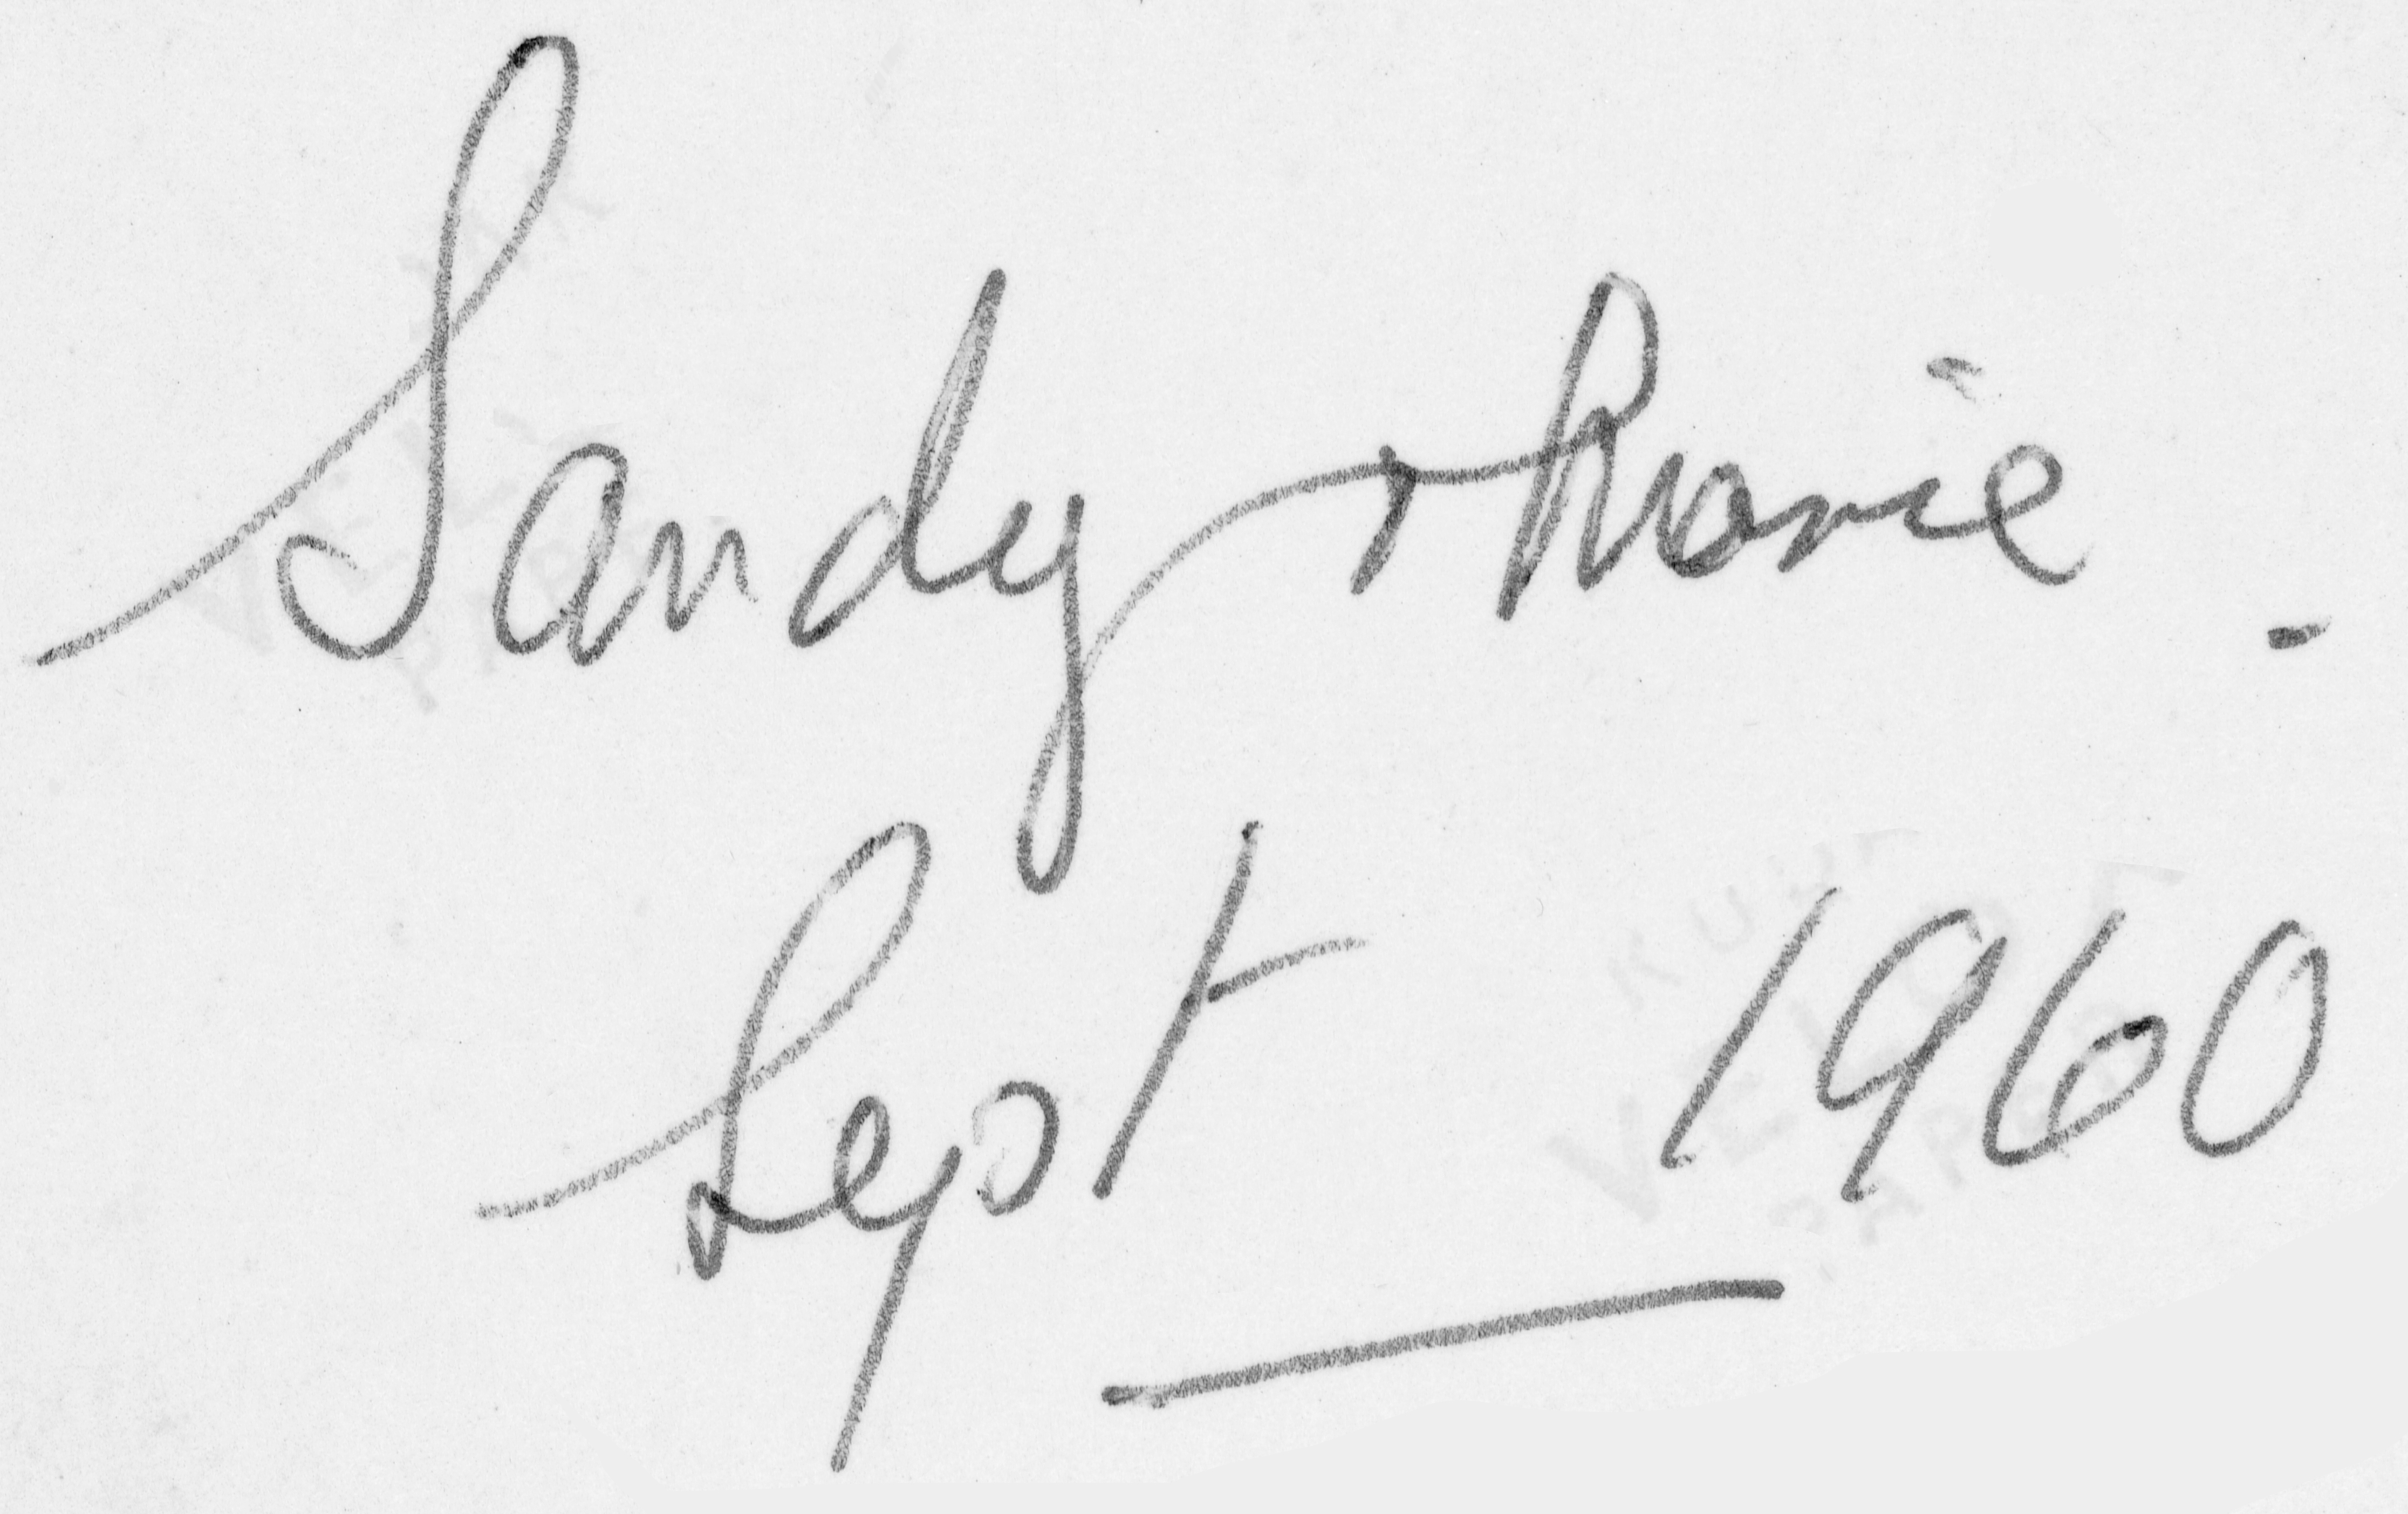 Sandy + Marie.
Sept 1960